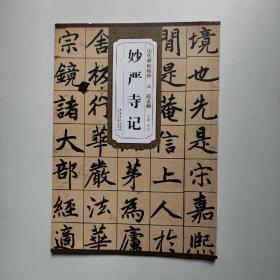 境也先是宋嘉熙
間是菴信上人於
茅為廬
舍板行華嚴法華
宗鏡諸大部經適
历代碑帖精粹 元 赵孟頫
妙严寺记